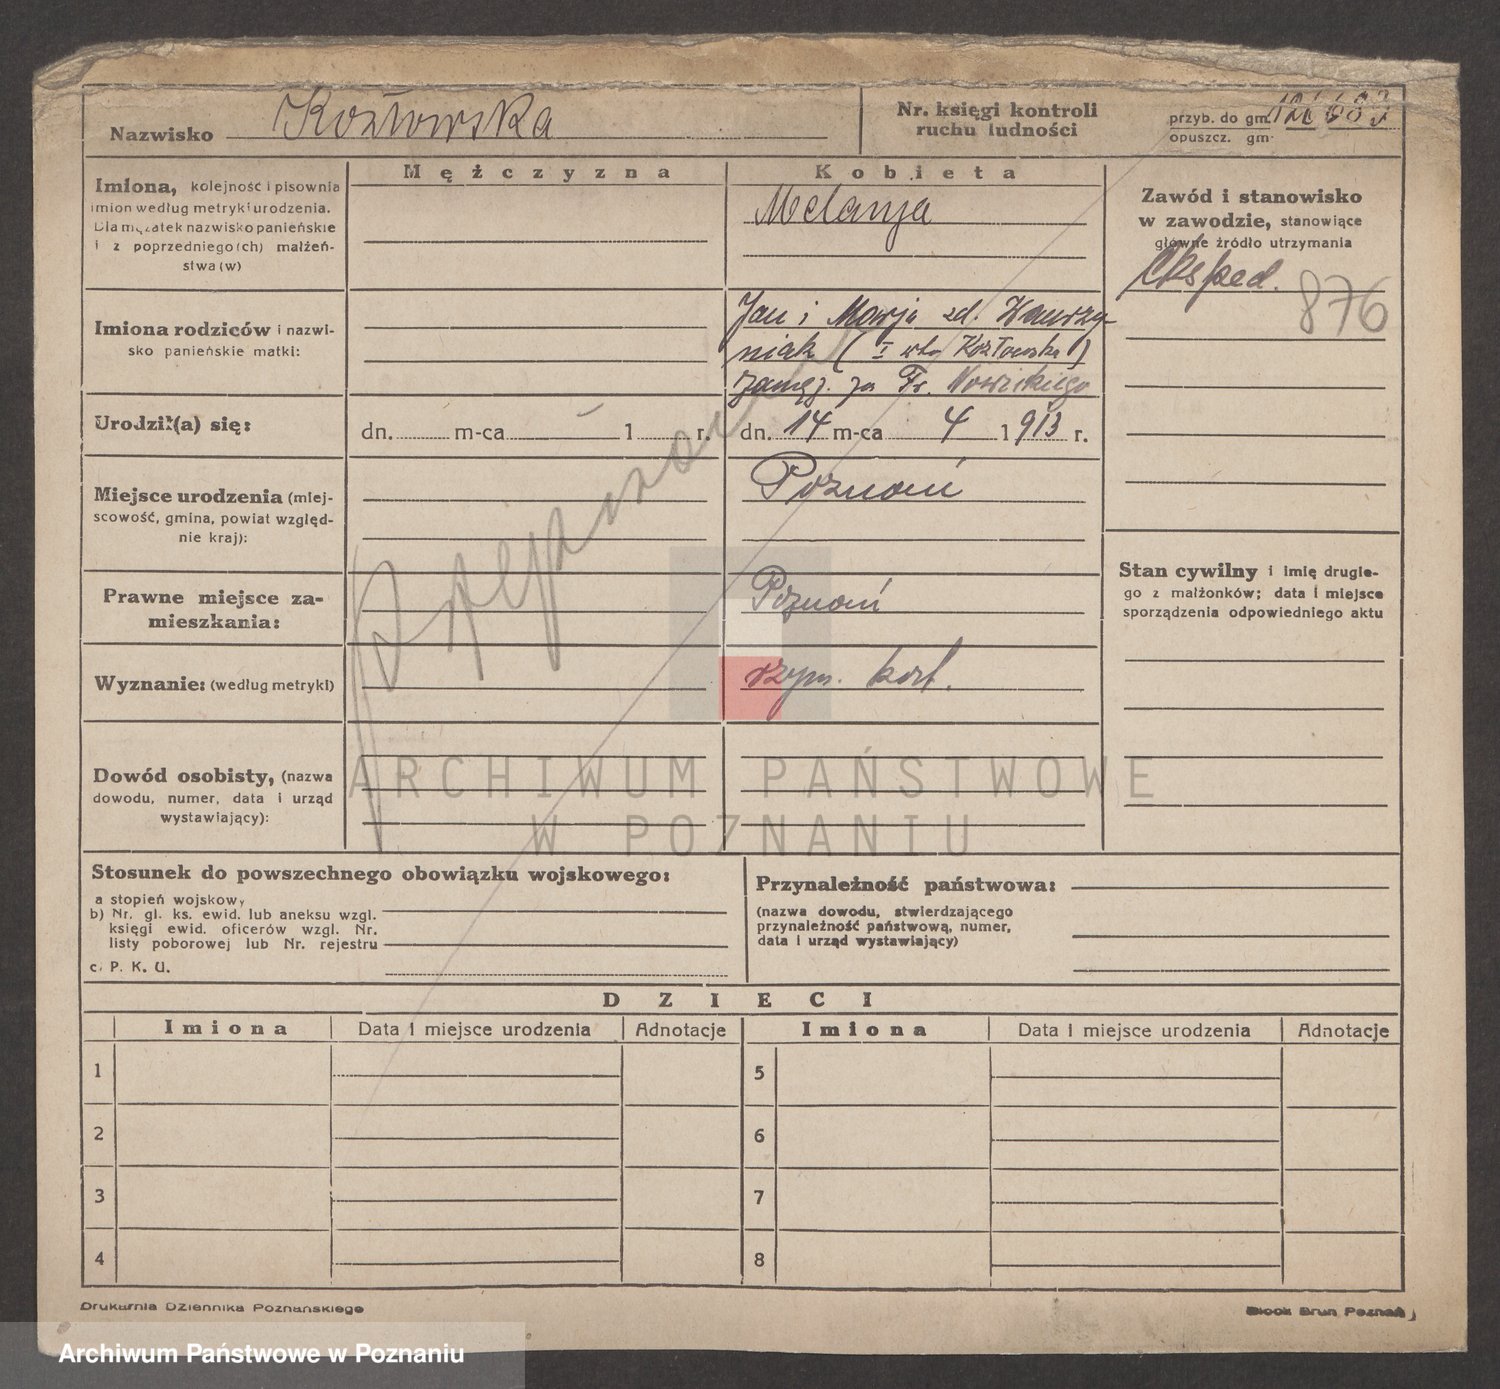 Nazwisko Kozłowska
Nr. księgi kontroli
ruchu ludności
przyb. do gm.
opuszcz. gm.
Mężczyzna
Kobieta
Imiona, kolejność i pisownia
imion według metryki urodzenia.
Dla mężatek nazwisko panieńskie
i z poprzedniego(ch) małżeń-
stwa(w)
Melanja
Zawód i stanowisko
w zawodzie, stanowiące
główne źródło utrzymania
eksped.
876
Imiona rodziców i nazwi-
sko panieńskie matki:
Jan i Marja zd. Wawrzy-
niak (I wto Kozłowska)
zamęż. za Fr. Nowickiego
Urodził(a) się:
dn. m-ca 1 r.
dn. 14 m-ca 4 1913 r.
Miejsce urodzenia (miej-
scowość, gmina, powiat względ-
nie kraj):
Poznań
Prawne miejsce za-
mieszkania:
Poznań
Stan cywilny i imię drugie-
go z małżonków; data i miejsce
sporządzenia odpowiedniego aktu
Wyznanie: (według metryki)
rzym. kat.
Dowód osobisty, (nazwa
dowodu, numer, data i urząd
wystawiający):
ARCHIWUM PAŃSTWOWE
W POZNANIU
Stosunek do powszechnego obowiązku wojskowego:
a stopień wojskowy
b) Nr. gl. ks. ewid. lub aneksu wzgl.
księgi ewid. oficerów wzgl. Nr.
listy poborowej lub Nr. rejestru
c. P. K. U.
Przynależność państwowa:
(nazwa dowodu, stwierdzającego
przynależność państwową, numer,
data i urząd wystawiający)
DZIECI
Imiona Data i miejsce urodzenia Adnotacje Imiona Data i miejsce urodzenia Adnotacje
1 5
2 6
3 7
4 8
Drukarnia Dziennika Poznańskiego
Block Brun Poznań
Archiwum Państwowe w Poznaniu